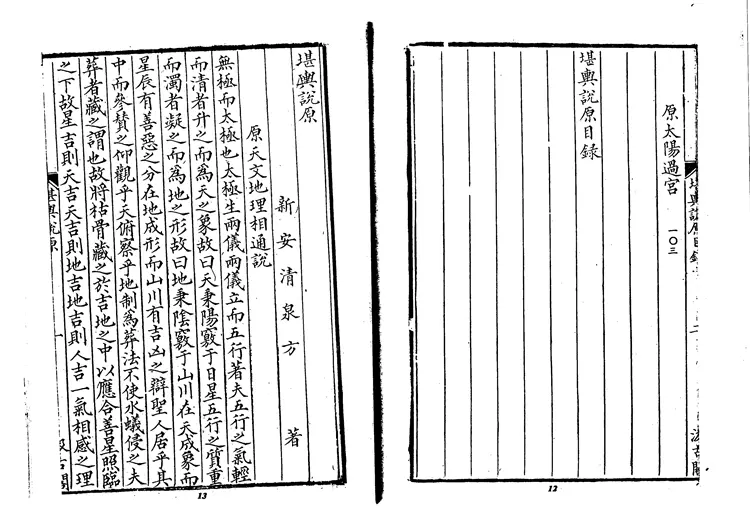 原太陽過宮 一〇三
堪輿說原目錄
12
堪輿說原
新安清泉方 著
原天文地理相通說
無極而太極也太極生兩儀兩儀立而五行著夫五行之氣輕
而清者升之而爲天之象故曰天秉陽竅于日星五行之質重
而濁者凝之而爲地之形故曰地秉陰竅于山川在天成象而
星辰有善惡之分在地成形而山川有吉凶之辯聖人居乎其
中而參賛之仰觀乎天俯察乎地制爲葬法不使水蟻侵之夫
葬者藏之謂也故將枯骨藏之於吉地之中以應合善星照臨
之下故星吉則天吉天吉則地吉地吉則人吉一氣相感之理
堪輿說原
一
13